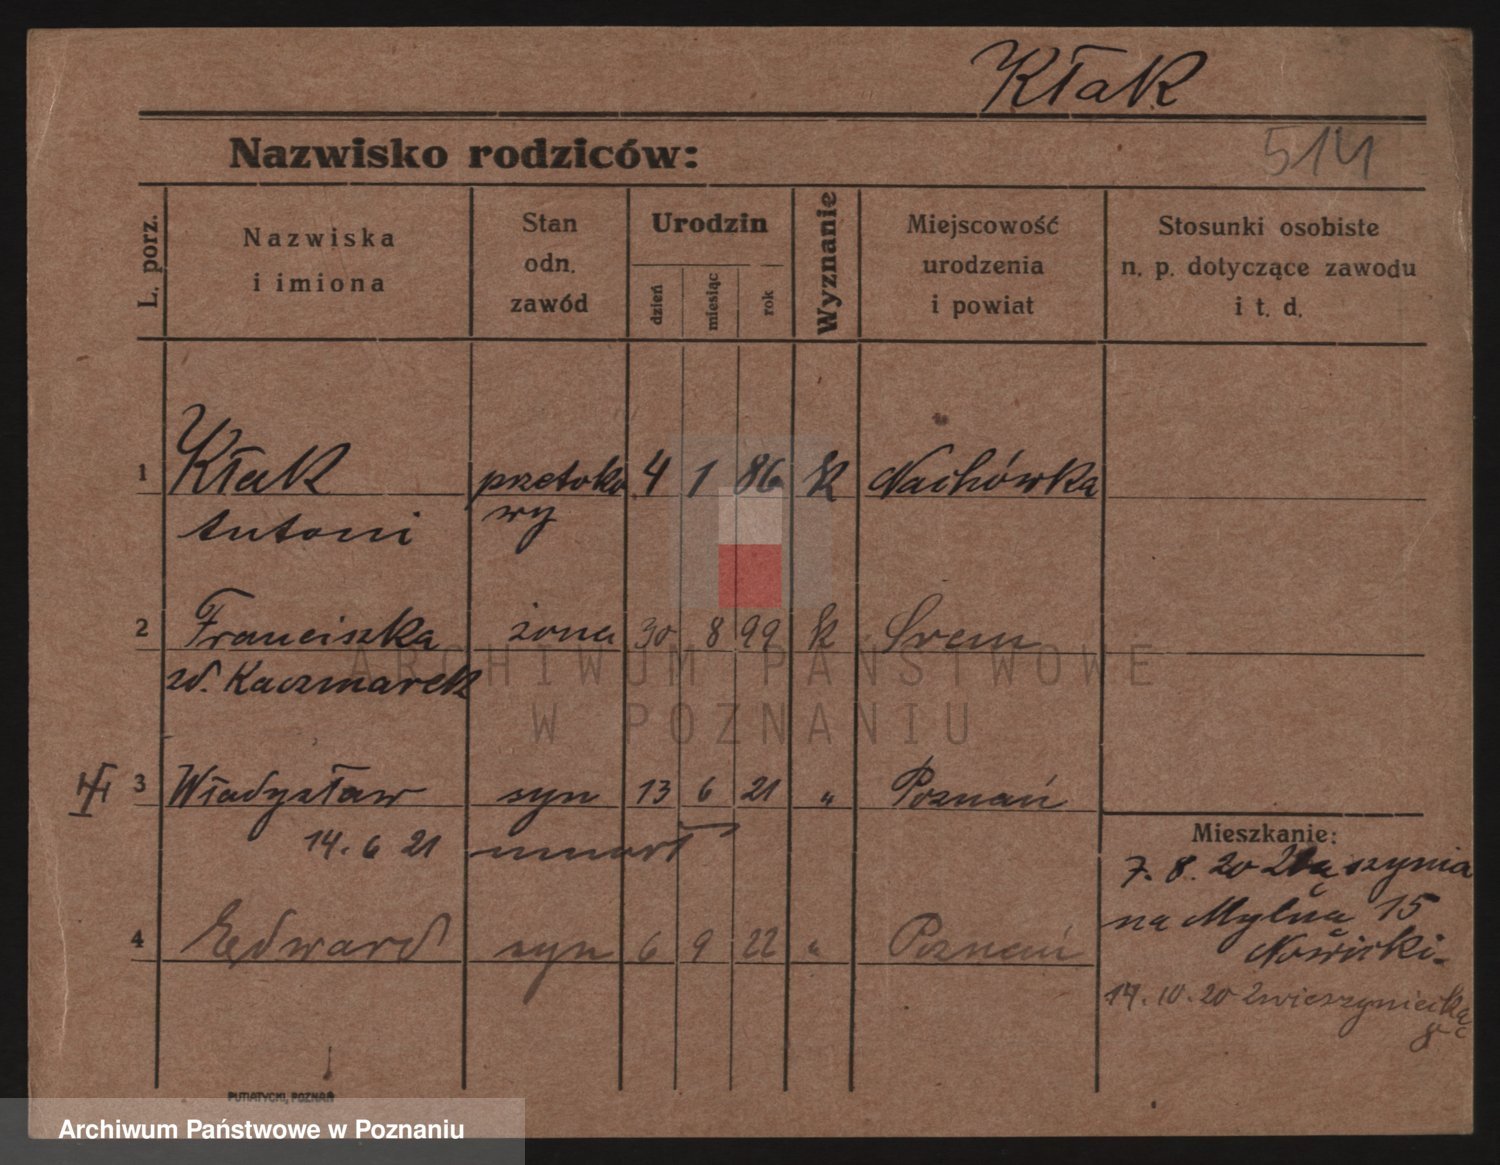 Kłak
Nazwisko rodziców:
514
L. porz.
Nazwiska
i imiona
Stan
odn.
zawód
Urodzin
dzień
miesiąc
rok
Wyznanie
Miejscowość
urodzenia
i powiat
Stosunki osobiste
n. p. dotyczące zawodu
i t. d.
1 Kłak przetoko 4 1 86 k Nachówka
Antoni wy
2 Franciszka żona 30 8 99 k Srem
zd. Kaczmarek
3 Władysław syn 13 6 21 " Poznań
14. 6 21 umarł
Mieszkanie:
7. 8. 20
na Mylną 15
4 Edward syn 6 9 22 " Poznań
Nowicki
14. 10. 20
PUTIATYCKI, POZNAŃ
ARCHIWUM PAŃSTWOWE
W POZNANIU
Archiwum Państwowe w Poznaniu